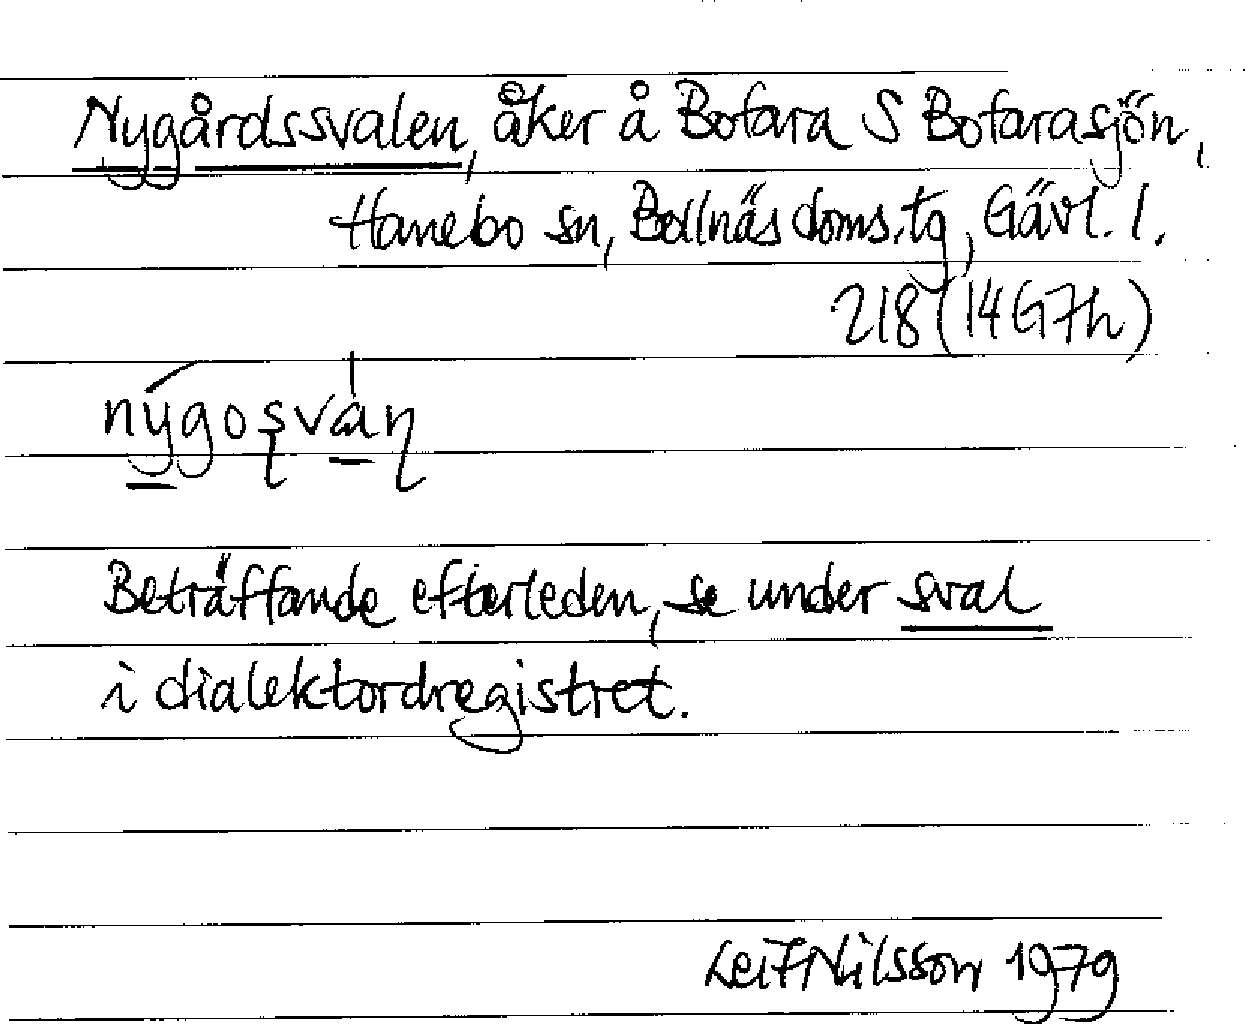 Nygårdssvalen, åker å Bofara S Bofarasjön,
Hanebo sn, Bollnäs doms.tg, Gävl. l.
218 (14G7h)
nýgoʂváɳ
Beträffande efterleden, se under sval
i dialektordregistret.
Leif Nilsson 1979